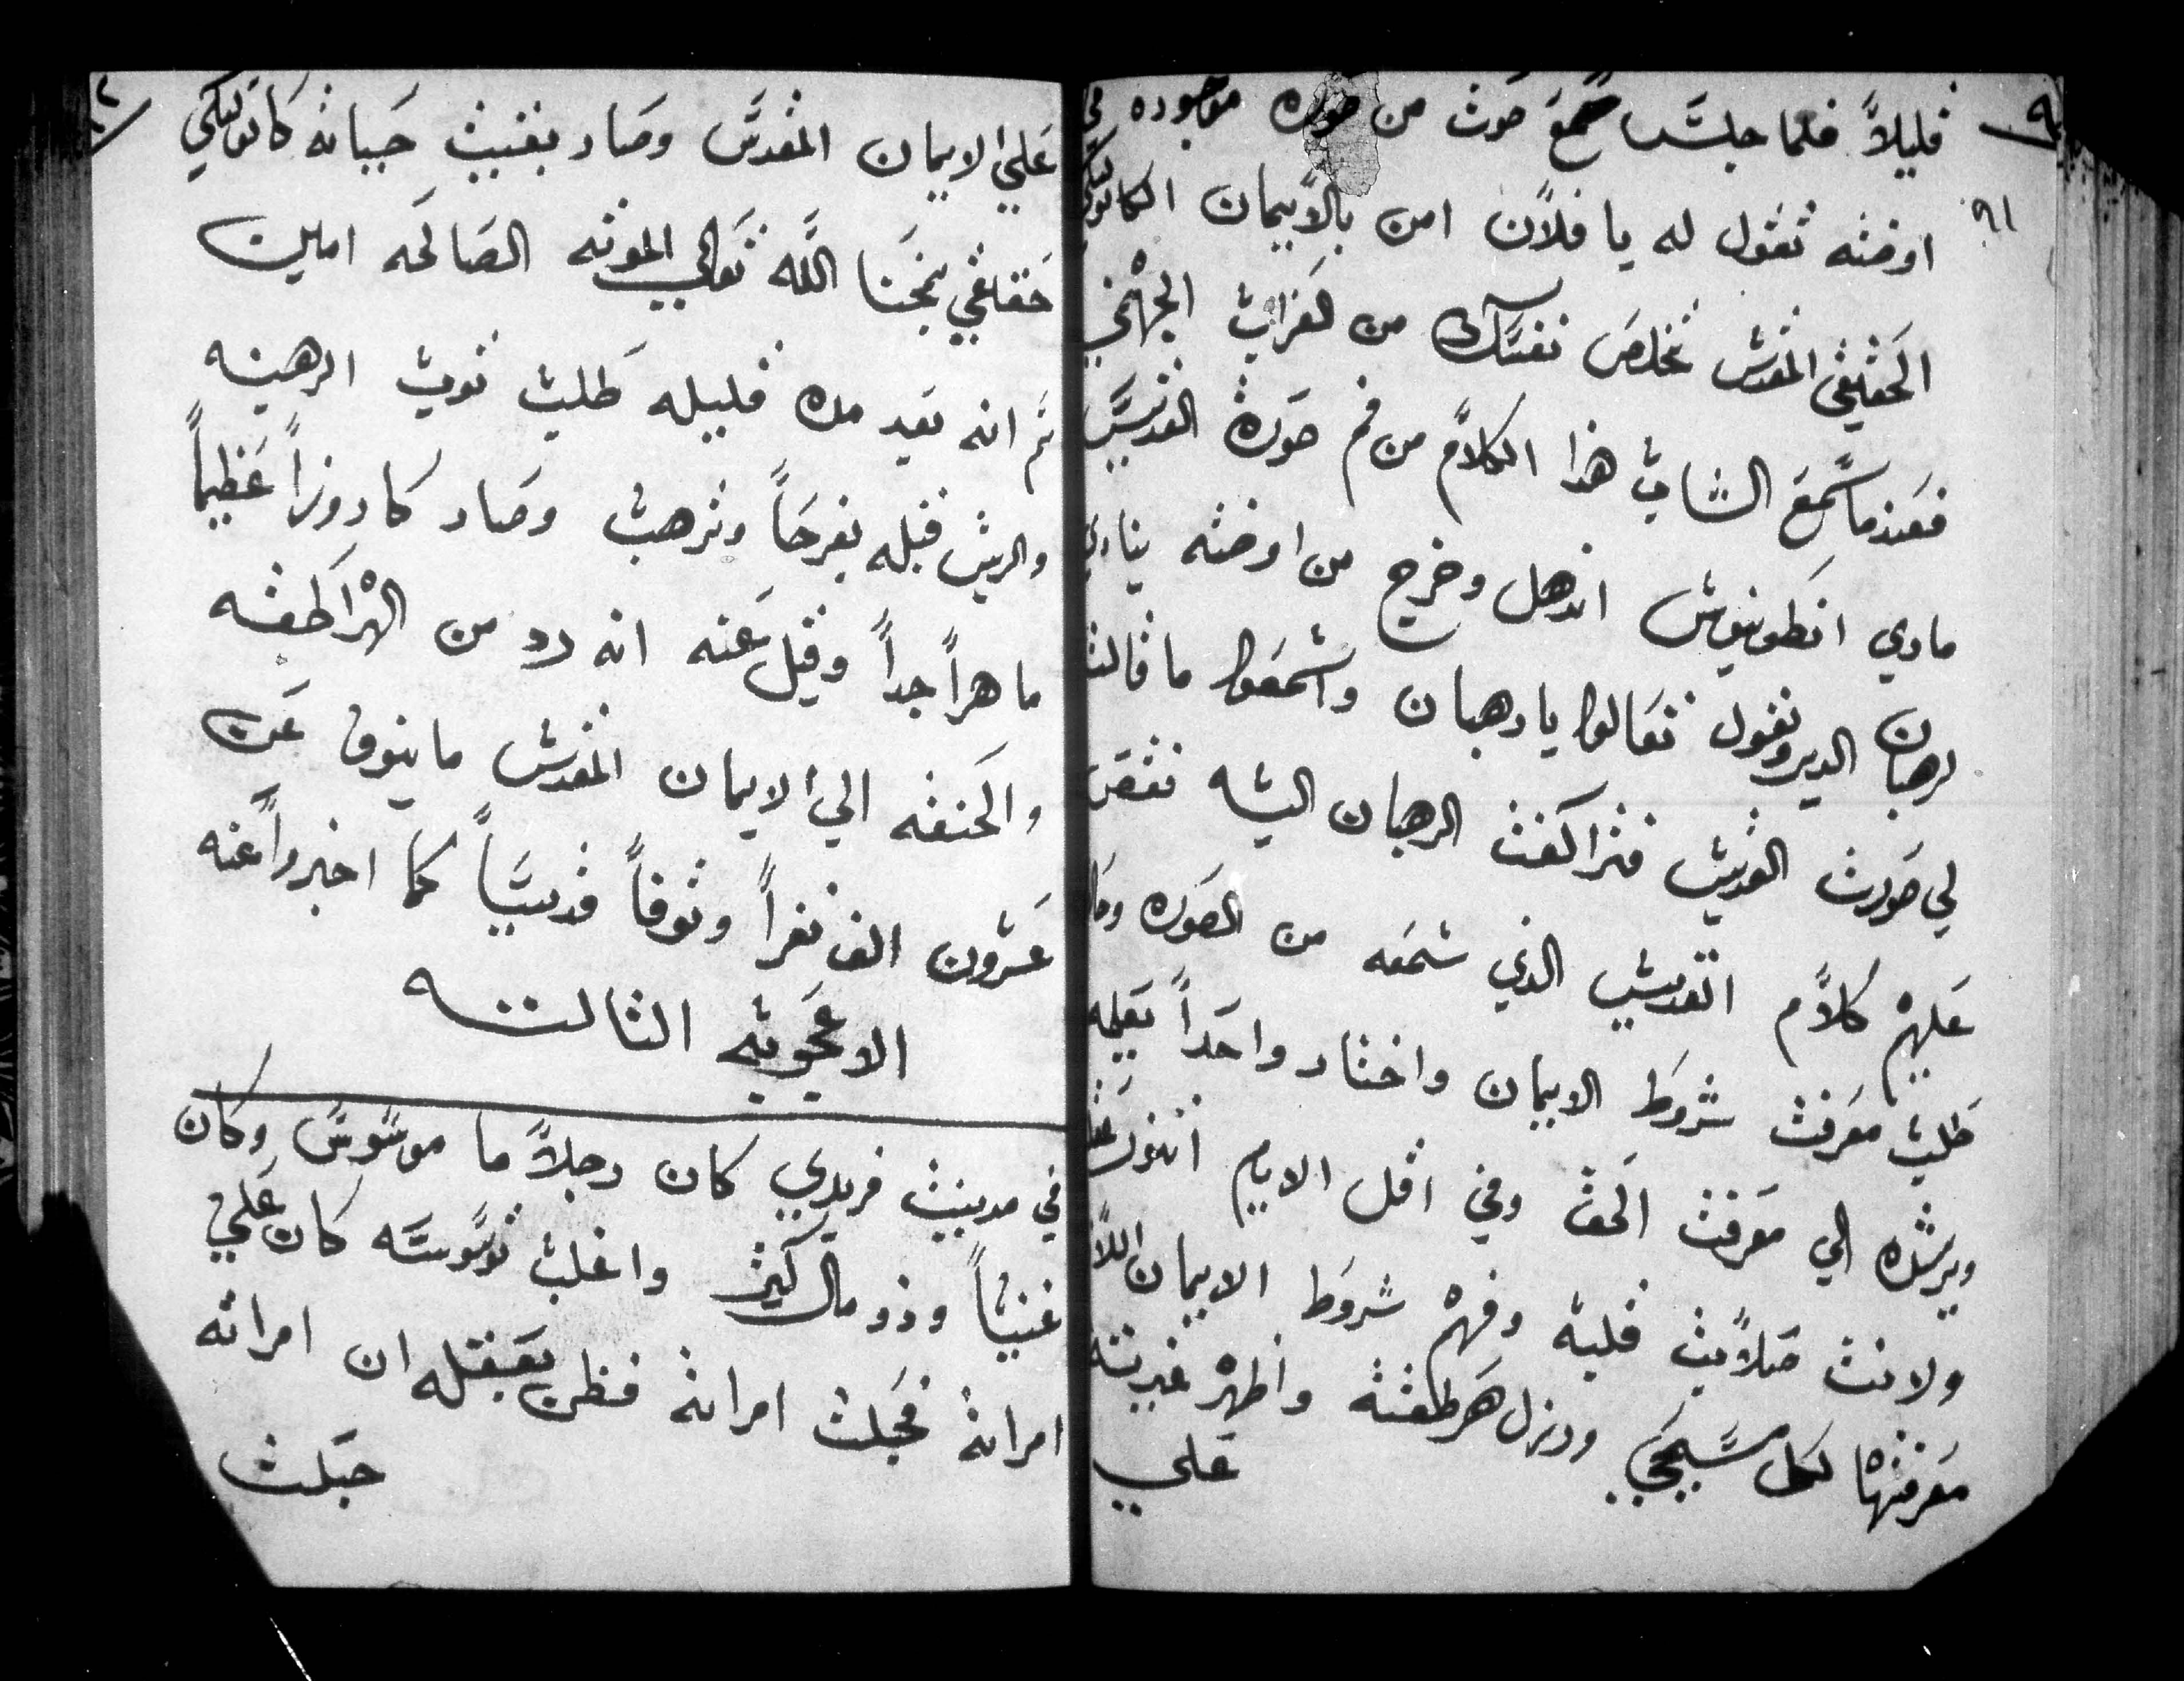 قليلاً فلما جلس سمع صوت من صوره موجوده في
٩١
اوضته تقول له يا فلان امن بالايمان الكاتوليكي
الحقيقي المقدس تخلص نفسك من لعذاب الجهنمي
فعندما سمع الشاب هذا الكلام من فم صورة القديس
مادي انطونيوس اندهل وخرج من اوضته ينادي
لرهبان الدير ويقول تعالوا يا رهبان واسمعوا ما قالت
لي صورت القديس فتراكضت الرهبان اليه فقص
عليهم كلام القديس الذي سمعه من الصوره وحالا
طلب معرفت شروط الايمان واختار واحداً يعلمه
ويرشده الي معرفت الحق وفي اقل الايام
ولانت صلابت قلبه وفهم شروط الايمان اللازم
معرفتها لكل مسيحي ورذل هرطقته واظهر غيرته
علي
علي الايمان المقدس وصار بقيت حياته كاتوليكي
حقيقي يمنحنا الله تعالي الموته الصالحه امين
ثم انه بعد مده قليله طلب توب الرهبنه
والريس قبله بفرحاً وترهب وصار كاروزاً عظيماً
ماهراً جداً وقيل عنه انه رد من الهراطقه
والحنفه الي الايمان المقدس ما ينوف عن
عشرون الف نفراً وتوفاً قديساً كما اخبروا عنه
الاعجوبه الثالثه
في مدينت فريدي كان رجلاً ما موسوس وكان
غنياً وذو مال كثير واغلب توسوسه كان علي
امراته فحبلت امراته فظن بعقله ان امراته
حبلت